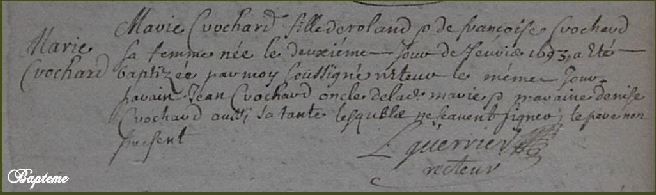 Marie Crochard
Marie Crochard fille de roland & de francoise Crochard
sa femme née le deuxieme Jour de fevrier 1693, a eté
baptizée par moy soussigné recteur le même Jour
parain Jean Crochard oncle de lad. marie & maraine denise
Crochard aussi sa tante lesquels ne scavent signer, le pere non
present
L guerrier
recteur
Bapteme